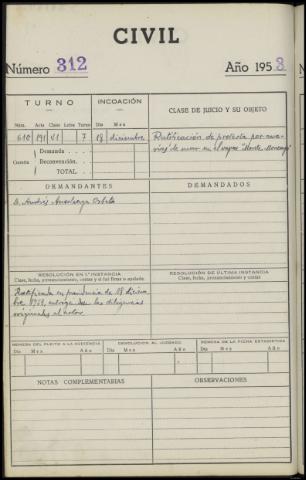 CIVIL
Número 312 Año 1953
TURNO INCOACIÓN CLASE DE JUICIO Y SU OBJETO
Núm. Acta Clase Letra Turno Día Mes
610 191 VI 7 18 diciembre Ratificación de protesta por
de mar en el vapor "Monte
Cuantía Demanda . . .
Reconvención.
TOTAL . .
DEMANDANTES DEMANDADOS
D. Andrés
RESOLUCIÓN EN 1.ª INSTANCIA RESOLUCIÓN DE ÚLTIMA INSTANCIA
Clase, fecha, pronunciamiento, costas y si fué firme o apelada Clase, fecha, pronunciamiento y costas
Ratificada en providencia de 18 diciem-
bre las diligencias
originales al actor
REMESA DEL PLEITO A LA AUDIENCIA DEVOLUCIÓN AL JUZGADO REMESA DE LA FICHA ESTADÍSTICA
Día Mes Año Día Mes Año Día Mes Año
NOTAS COMPLEMENTARIAS OBSERVACIONES